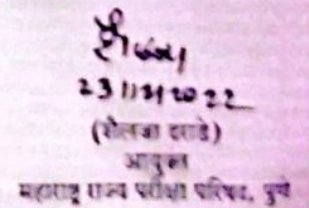 23/11/2022
(शैलजा दराडे)
आयुक्त
महाराष्ट्र राज्य परीक्षा परिषद, पुणे